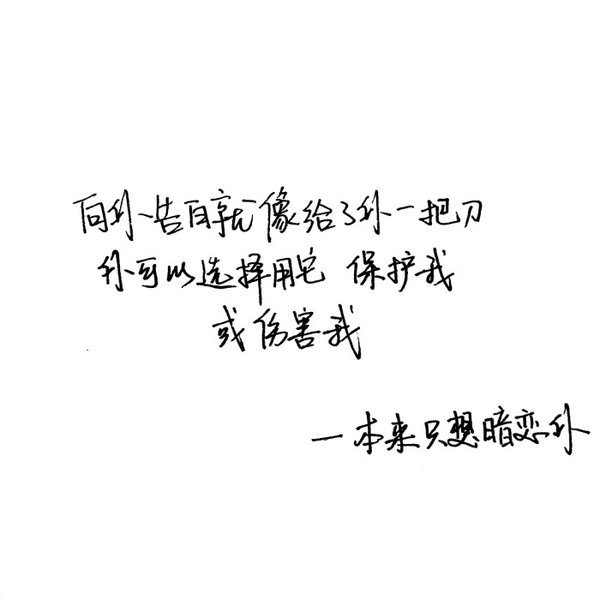 向你告白就像给了你一把刀
你可以选择用它 保护我
或伤害我
—本来只想暗恋你